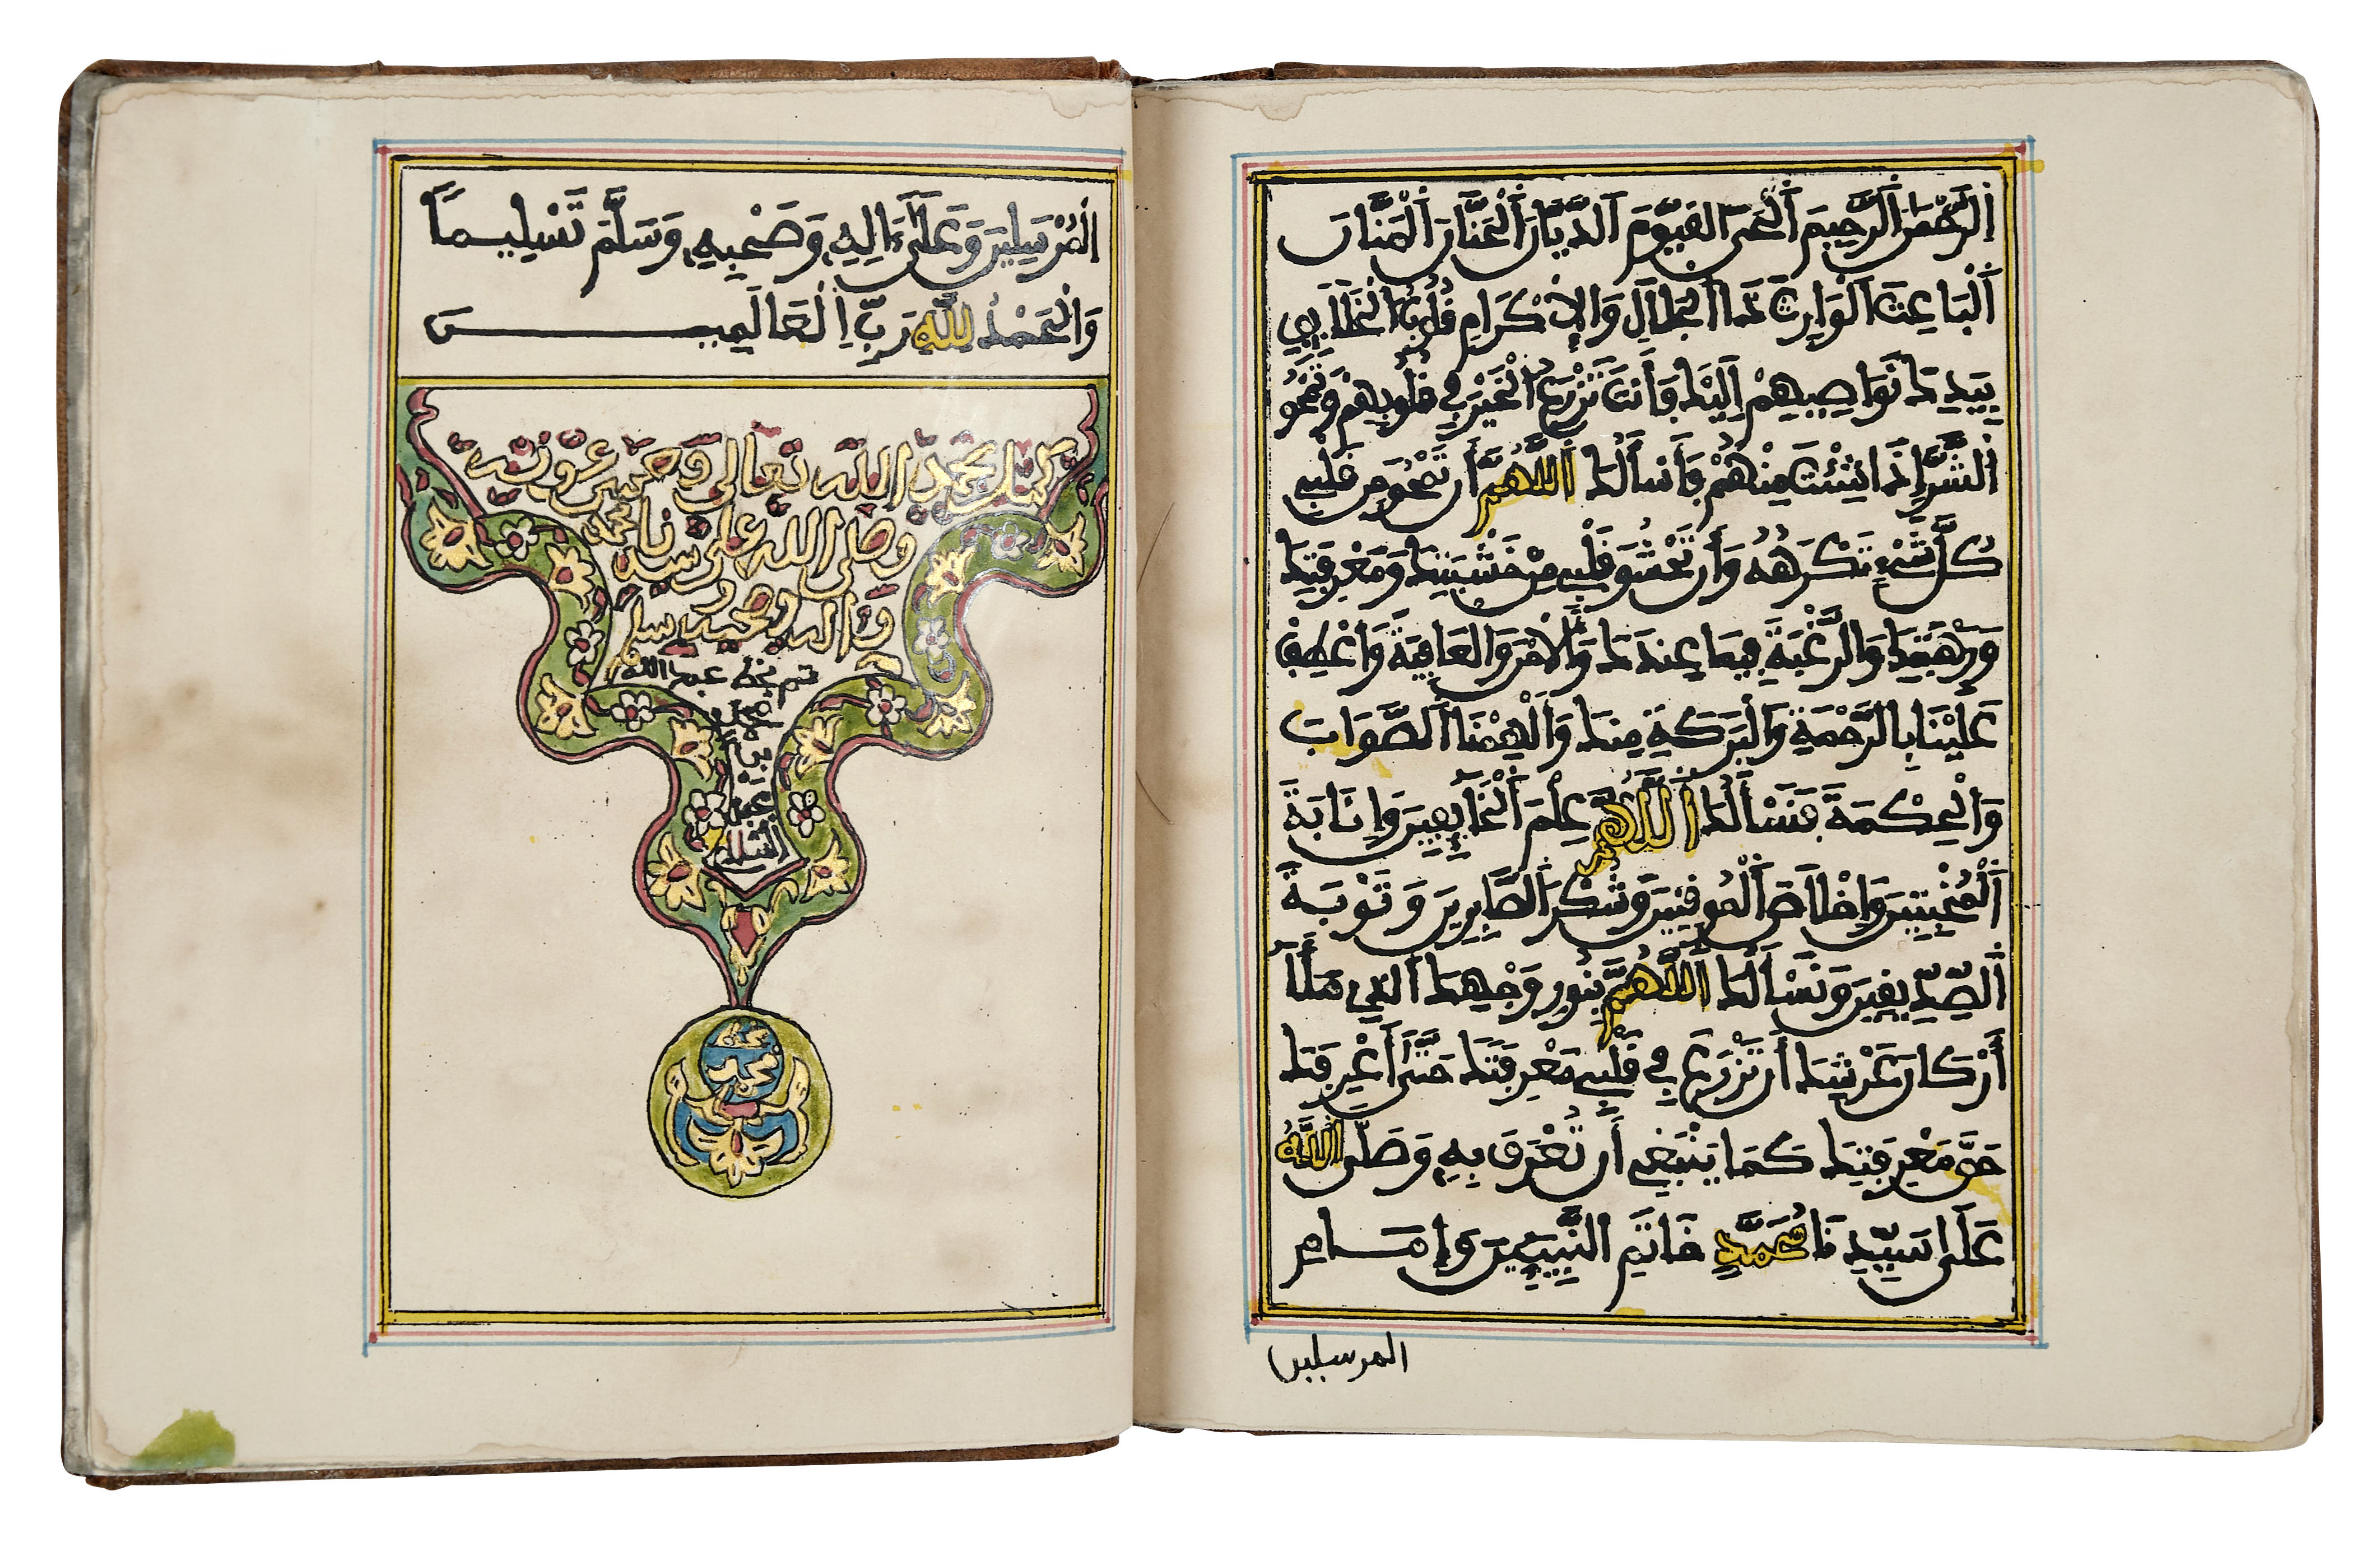 الرَّحْمَنَ الرَّحِيمَ الْحَيَّ الْقَيُّومَ الدَّيَّانَ الْحَنَّانَ الْمَنَّانَ
الْبَاعِثَ الْوَارِثَ ذَا الْجَلَالِ وَالْإِكْرَامِ قُلُوبُ الْخَلَائِقِ
بِيَدِكَ نَوَاصِيهِمْ إِلَيْكَ فَأَنْتَ تَزْرَعُ الْخَيْرَ فِي قُلُوبِهِمْ وَتَمْحُو
الشَّرَّ إِذَا شِئْتَ مِنْهُمْ فَأَسْأَلُكَ اللَّهُمَّ أَنْ تَمْحُوَ مِنْ قَلْبِي
كُلَّ شَيْءٍ تَكْرَهُهُ وَأَنْ تَحْشُوَ قَلْبِي مِنْ خَشْيَتِكَ وَمَعْرِفَتِكَ
وَرَهْبَتِكَ وَالرَّغْبَةِ فِيمَا عِنْدَكَ وَالْأَمْنَ وَالْعَافِيَةَ وَاعْطِفْ
عَلَيْنَا بِالرَّحْمَةِ وَالْبَرَكَةِ مِنْكَ وَأَلْهِمْنَا الصَّوَابَ
وَالْحِكْمَةَ فَنَسْأَلُكَ اللَّهُمَّ عِلْمَ الْخَائِفِينَ وَإِنَابَةَ
الْمُخْبِتِينَ وَإِخْلَاصَ الْمُوقِنِينَ وَشُكْرَ الصَّابِرِينَ وَتَوْبَةَ
الصِّدِّيقِينَ وَنَسْأَلُكَ اللَّهُمَّ بِنُورِ وَجْهِكَ الَّذِي مَلَأَ
أَرْكَانَ عَرْشِكَ أَنْ تَزْرَعَ فِي قَلْبِي مَعْرِفَتَكَ حَتَّى أَعْرِفَكَ
حَقَّ مَعْرِفَتِكَ كَمَا يَنْبَغِي أَنْ تُعْرَفَ بِهِ وَصَلَّى اللَّهُ
عَلَى سَيِّدِنَا مُحَمَّدٍ خَاتَمِ النَّبِيِّينَ وَإِمَامِ
المرسلين
الْمُرْسَلِينَ وَعَلَى ءَالِهِ وَصَحْبِهِ وَسَلَّمَ تَسْلِيمًا
وَالْحَمْدُ لِلَّهِ رَبِّ الْعَالَمِينَ
كمل بحمد الله تعالى وحسن عونه
وصلى الله على سيدنا محمد
وءاله وصحبه وسلم
تم بخط عبد الله
محمد
بن
عبد
السلام
محمد